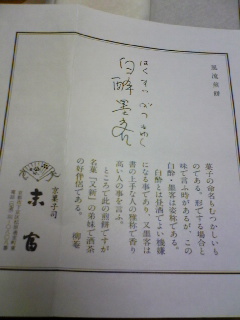 風流煎餅
はくすい ぶっかく
白酔墨客
菓子の命名もむつかしいも
のである。形でする場合と
味で言ふ時があるが、この
白酔・墨客は姿称である。
白酔とは昼酒でよい機嫌
になる事であり、又墨客は
書の上手な人の雅称で香り
高い人の事を言ふ。
ところで此の煎餅ですが
名菓「又新」の弟妹で酒茶
の好伴侶である。
柳菴
京菓子司
末富